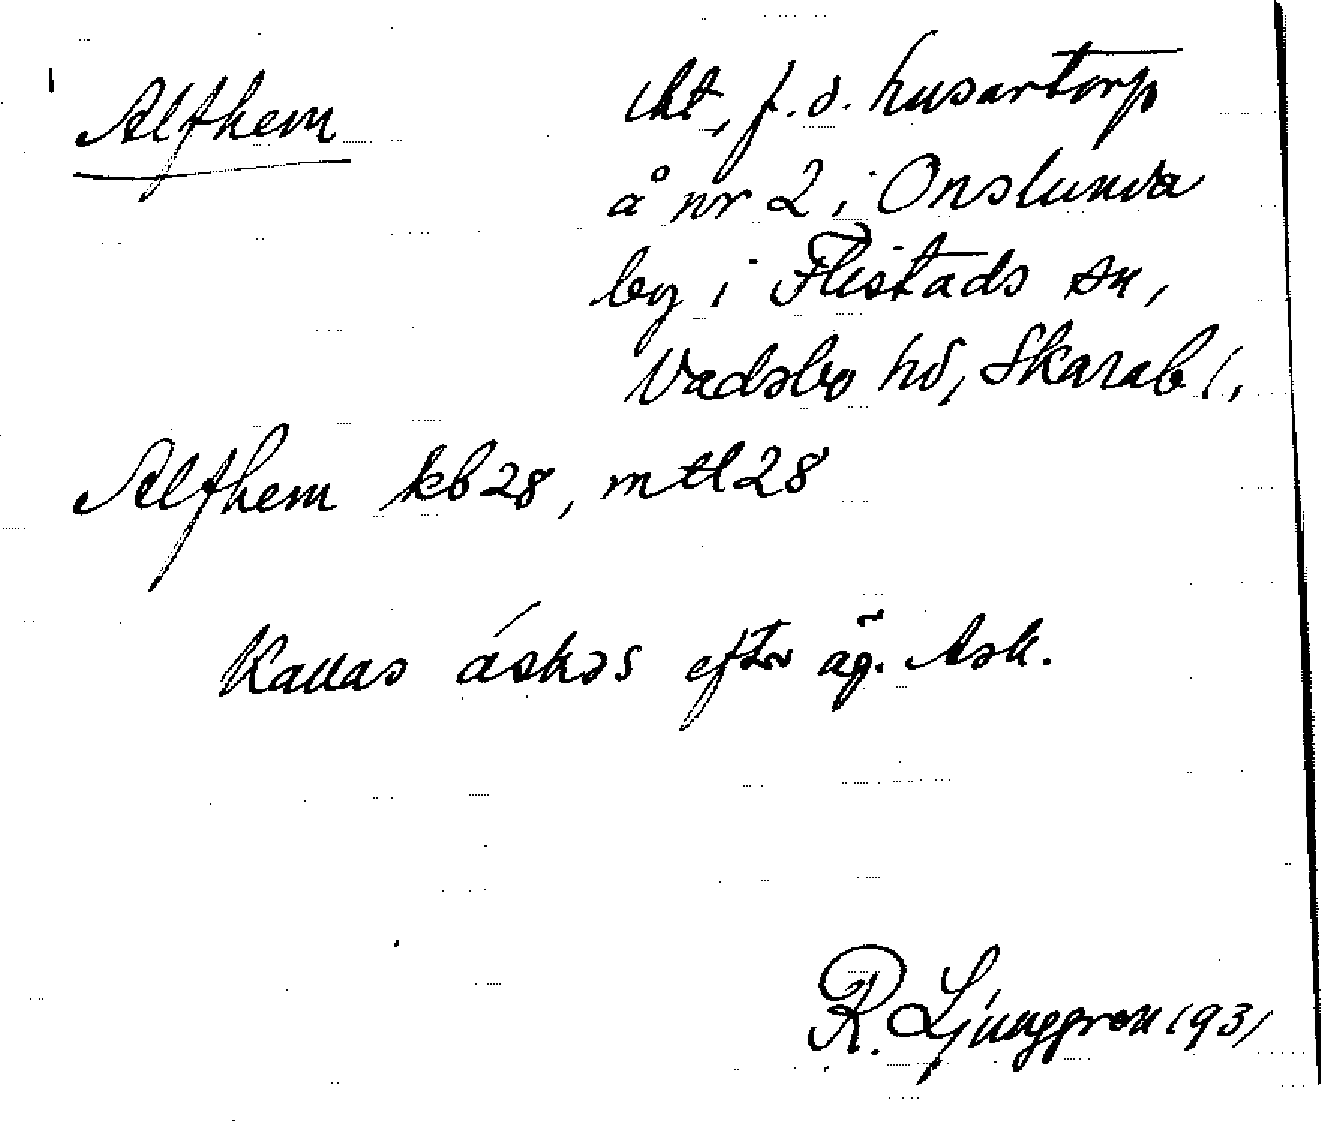 Alfhem
lht, f. d. husartorp
å nr 2 i Onslunda
by i Flistads sn,
Vadsbo hd, Skarab l,
Alfhem kb 28, mtl 28
Kallas áskəs efter äg. Ask.
R. Ljunggren 1931